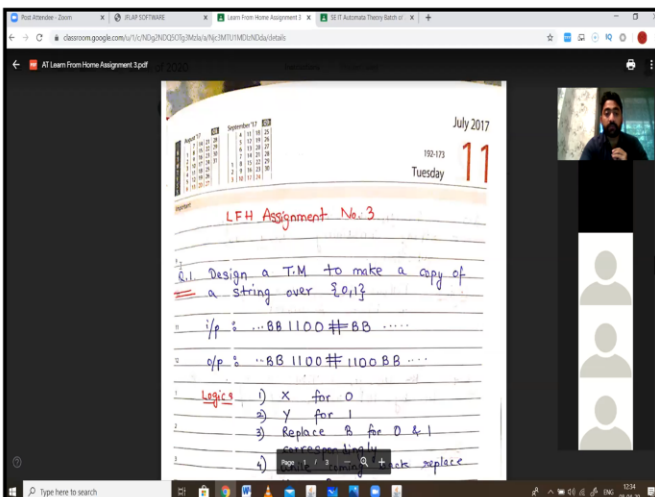 Post Attendee - Zoom
JFLAP SOFTWARE
Learn From Home Assignment 3
SE IT Automata Theory Batch of
AT Learn From Home Assignment 3.pdf
August '17
September '17
July 2017
192-173
11
Tuesday
Important
LFH Assignment No. 3
Q.1. Design a T.M to make a copy of
a string over {0,1}
i/p : ...BB 1100 # BB .....
o/p : ...BB 1100 # 1100 BB ....
Logic :
1) X for 0
2) Y for 1
3) Replace B for 0 & 1
correspondingly
4) while coming back replace
Page 1 / 3
Type here to search
ENG
12:34